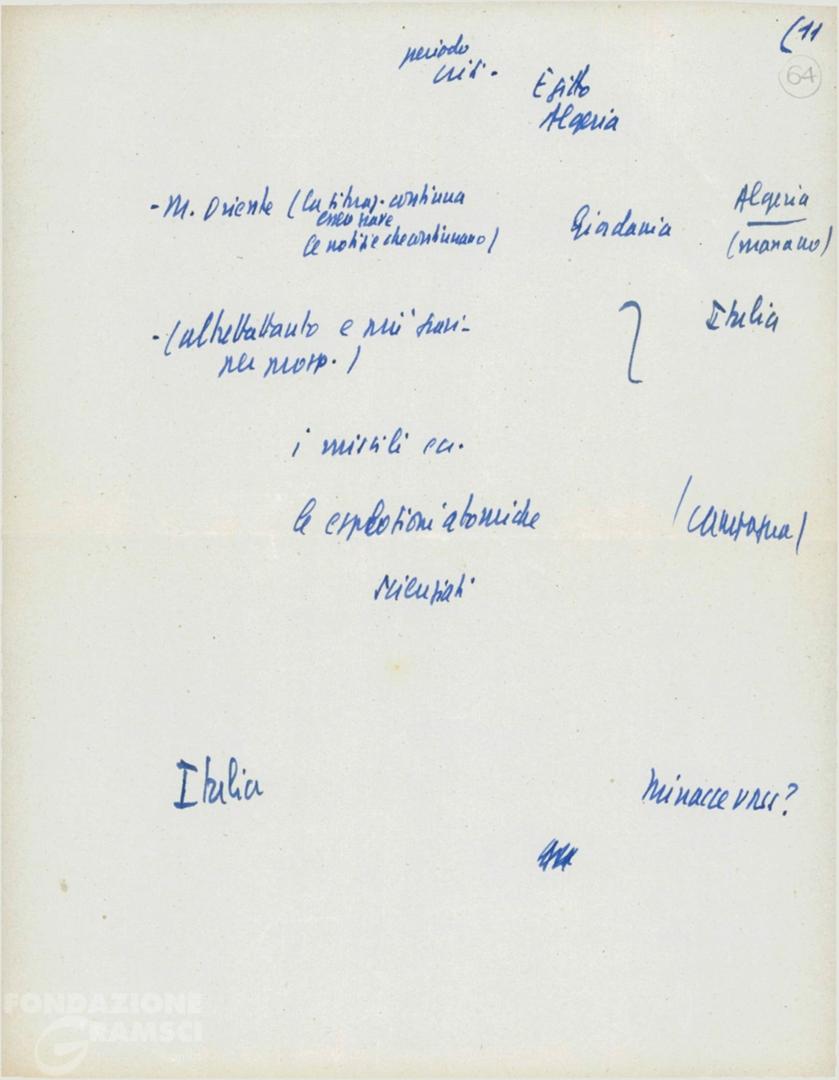 (11
64
periodo
crisi.
Egitto
Algeria
- M. Oriente (la situaz. continua
essere grave
le notizie che continuano)
Giordania
Algeria
(marocco)
- (altrettanto e più gravi-
per prosp.)
Italia
i missili ecc.
le esplosioni atomiche
(campagna)
scienziati
Italia
Minacce URSS?
FONDAZIONE
GRAMSCI